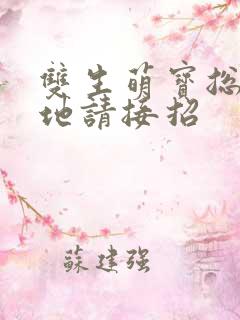 雙生萌寶總
地請接招
蘇建强